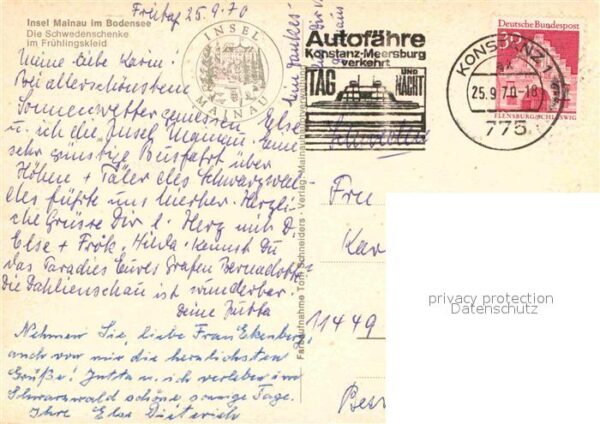 Freitag 25.9.70
Insel Mainau im Bodensee
Die Schwedenschenke
im Frühlingskleid
Meine liebe Karin!
Bei allerschönstem
Sonnenwetter genießen Else
u. ich die Insel Mainau. Eine
sehr günstige Busfahrt über
Höhen + Täler des Schwarzwal-
des führte uns hierher. Herzli-
che Grüsse Dir l. Herz mit D.
Else + Frök. Hilda. Kennst Du
das Paradies Eures Grafen Bernadotte?
Die Dahlienschau ist wunderbar.
Deine Jutta
Nehmen Sie, liebe Frau Ekenberg,
auch von mir die herzlichsten
Grüße! Jutta u. ich verleben im
Schwarzwald schöne sonnige Tage.
Ihre Else Dieterich
INSEL
MAINAU
Farbaufnahme Toni Schneiders · Verlag: Mainau
Autofähre
Konstanz-Meersburg
verkehrt
TAG
UND
NACHT
Deutsche Bundespost
FLENSBURG/SCHLESWIG
KONSTANZ 1
25.9.70-18
775
Schweden
Fru
Kar
11449
privacy protection
Datenschutz